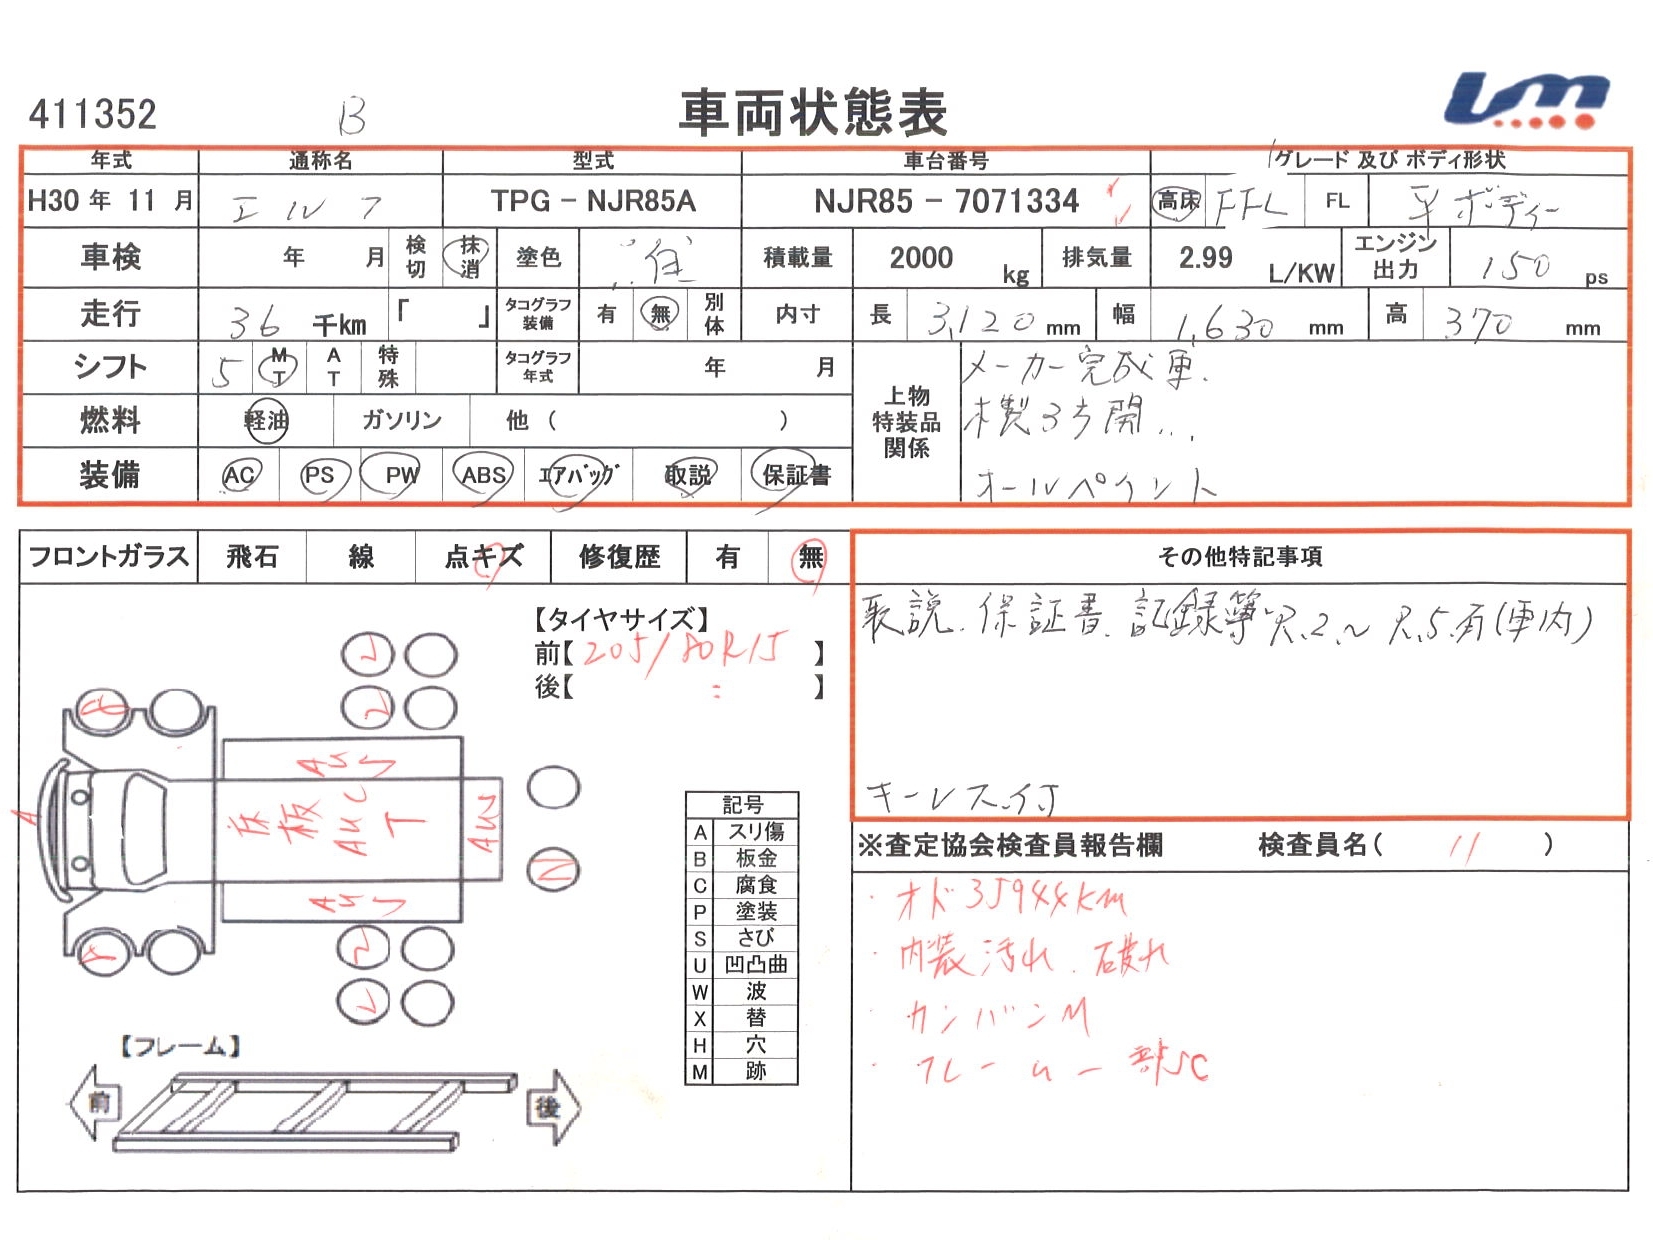 411352 B 車両状態表
年式 通称名 型式 車台番号 グレード 及び ボディ形状
H30 年 11 月 エルフ TPG - NJR85A NJR85 - 7071334 高床 FFL FL 平ボディー
車検 年 月 検切 抹消 塗色 積載量 2000 kg 排気量 2.99 L/KW エンジン出力 150 ps
走行 36 千km 「 」 タコグラフ装備 有 無 別体 内寸 長 3,120 mm 幅 1,630 mm 高 370 mm
シフト 5 MT AT 特殊 タコグラフ年式 年 月 上物特装品関係 メーカー完成車.
燃料 軽油 ガソリン 他 ( ) 木製3方開...
装備 AC PS PW ABS エアバッグ 取説 保証書 オールペイント
フロントガラス 飛石 線 点キズ 修復歴 有 無 その他特記事項
【タイヤサイズ】
前【 205/80R15 】
後【 : 】
取説.保証書.記録簿R.2.~R.5.有(車内)
キーレス付
A
AU S
床板
AUC
T
AUW
AU S
N
記号
A スリ傷
B 板金
C 腐食
P 塗装
S さび
U 凹凸曲
W 波
X 替
H 穴
M 跡
※査定協会検査員報告欄 検査員名( 11 )
・オド 35944km
・内装汚れ.破れ
・カンバンM
・フレーム一部SC
【フレーム】
前 後